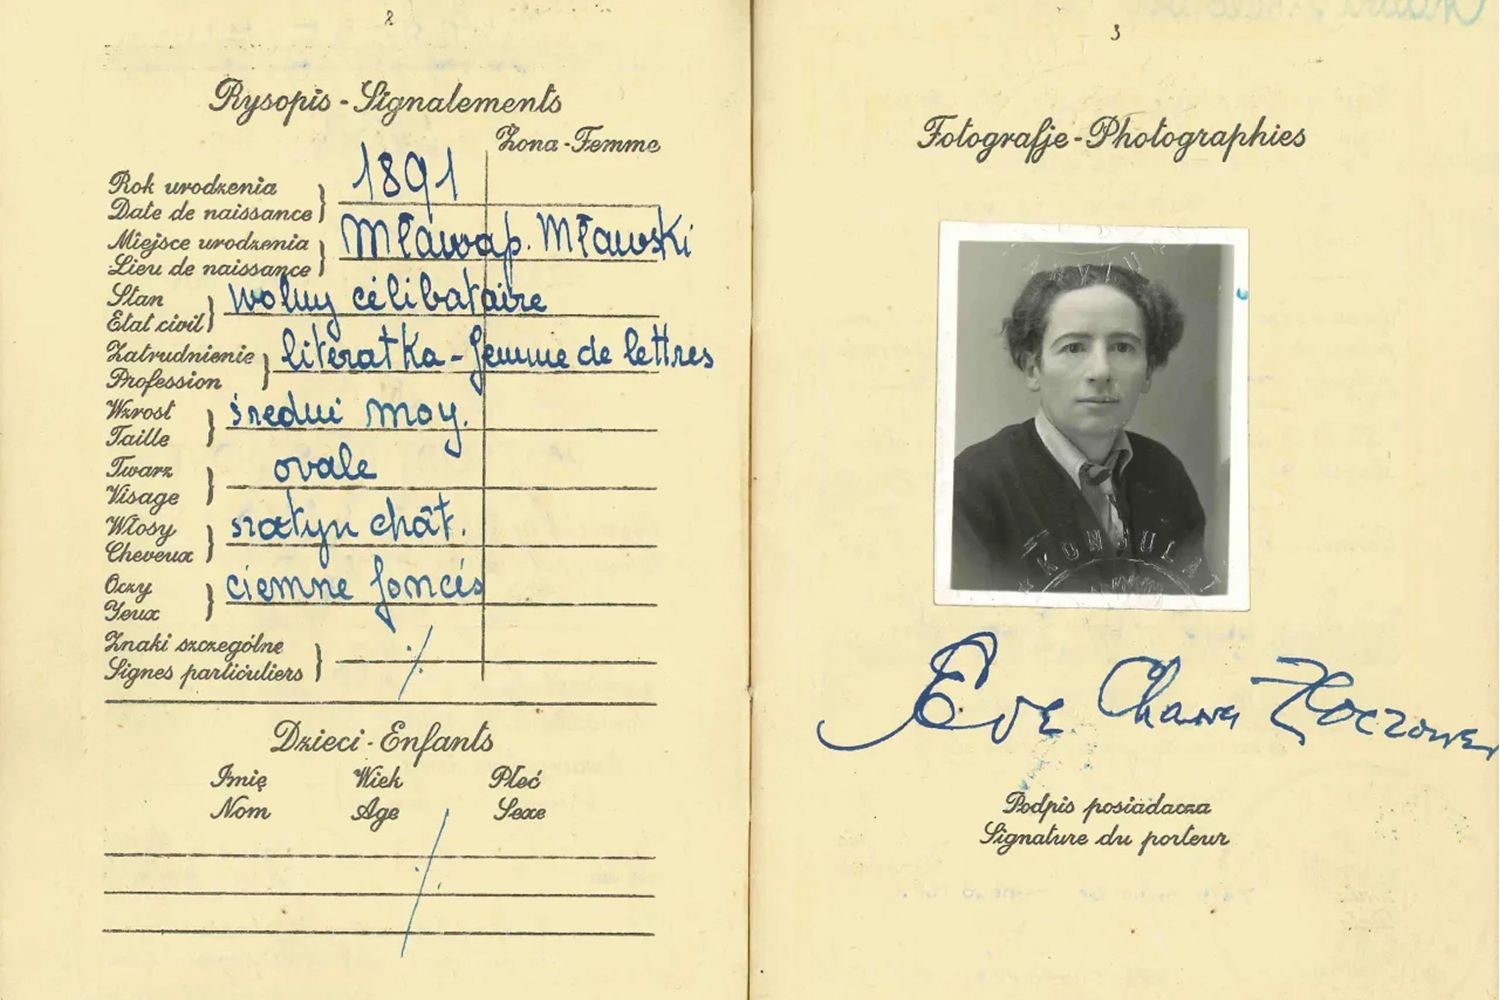 2
Rysopis - Signalements
Żona - Femme
Rok urodzenia
Date de naissance
1891
Miejsce urodzenia
Lieu de naissance
Mława p. Mławski
Stan
Etat civil
wolny célibataire
Zatrudnienie
Profession
literatka - femme de lettres
Wzrost
Taille
średni moy.
Twarz
Visage
ovale
Włosy
Cheveux
szatyn chât.
Oczy
Yeux
ciemne foncés
Znaki szczególne
Signes particuliers
·/.
Dzieci - Enfants
Imię Wiek Płeć
Nom Age Sexe
·/.
3
Fotografje - Photographies
KONSULA
Eve Chawa Zloczower
Podpis posiadacza
Signature du porteur